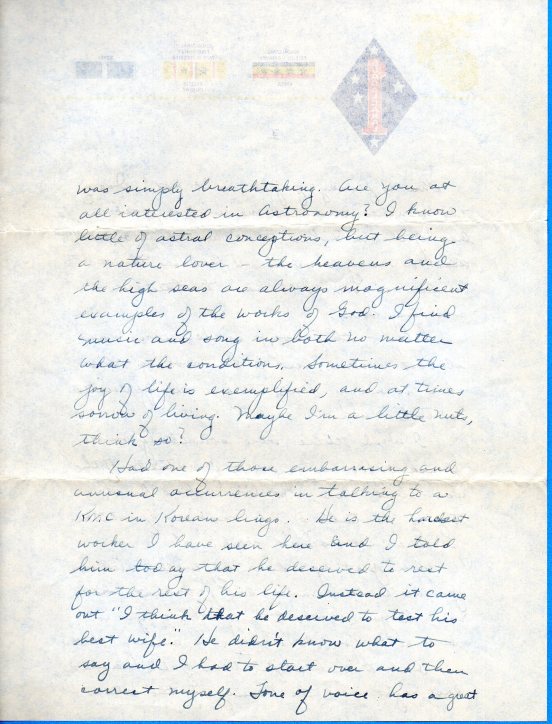 was simply breathtaking. Are you at
all interested in Astronomy? I know
little of astral conceptions, but being
a nature lover – the heavens and
the high seas are always magnificent
examples of the works of God. I find
music and song in both no matter
what the conditions. Sometimes the
joy of life is exemplified, and at times
sorrow of living. Maybe I'm a little nuts,
think so?
Had one of those embarrasing and
unusual occurrences in talking to a
KMC in Korean lingo. He is the hardest
worker I have seen here and I told
him today that he deserved to rest
for the rest of his life. Instead it came
out "I think that he deserved to test his
best wife." He didn't know what to
say and I had to start over and then
correct myself. Tone of voice has a great